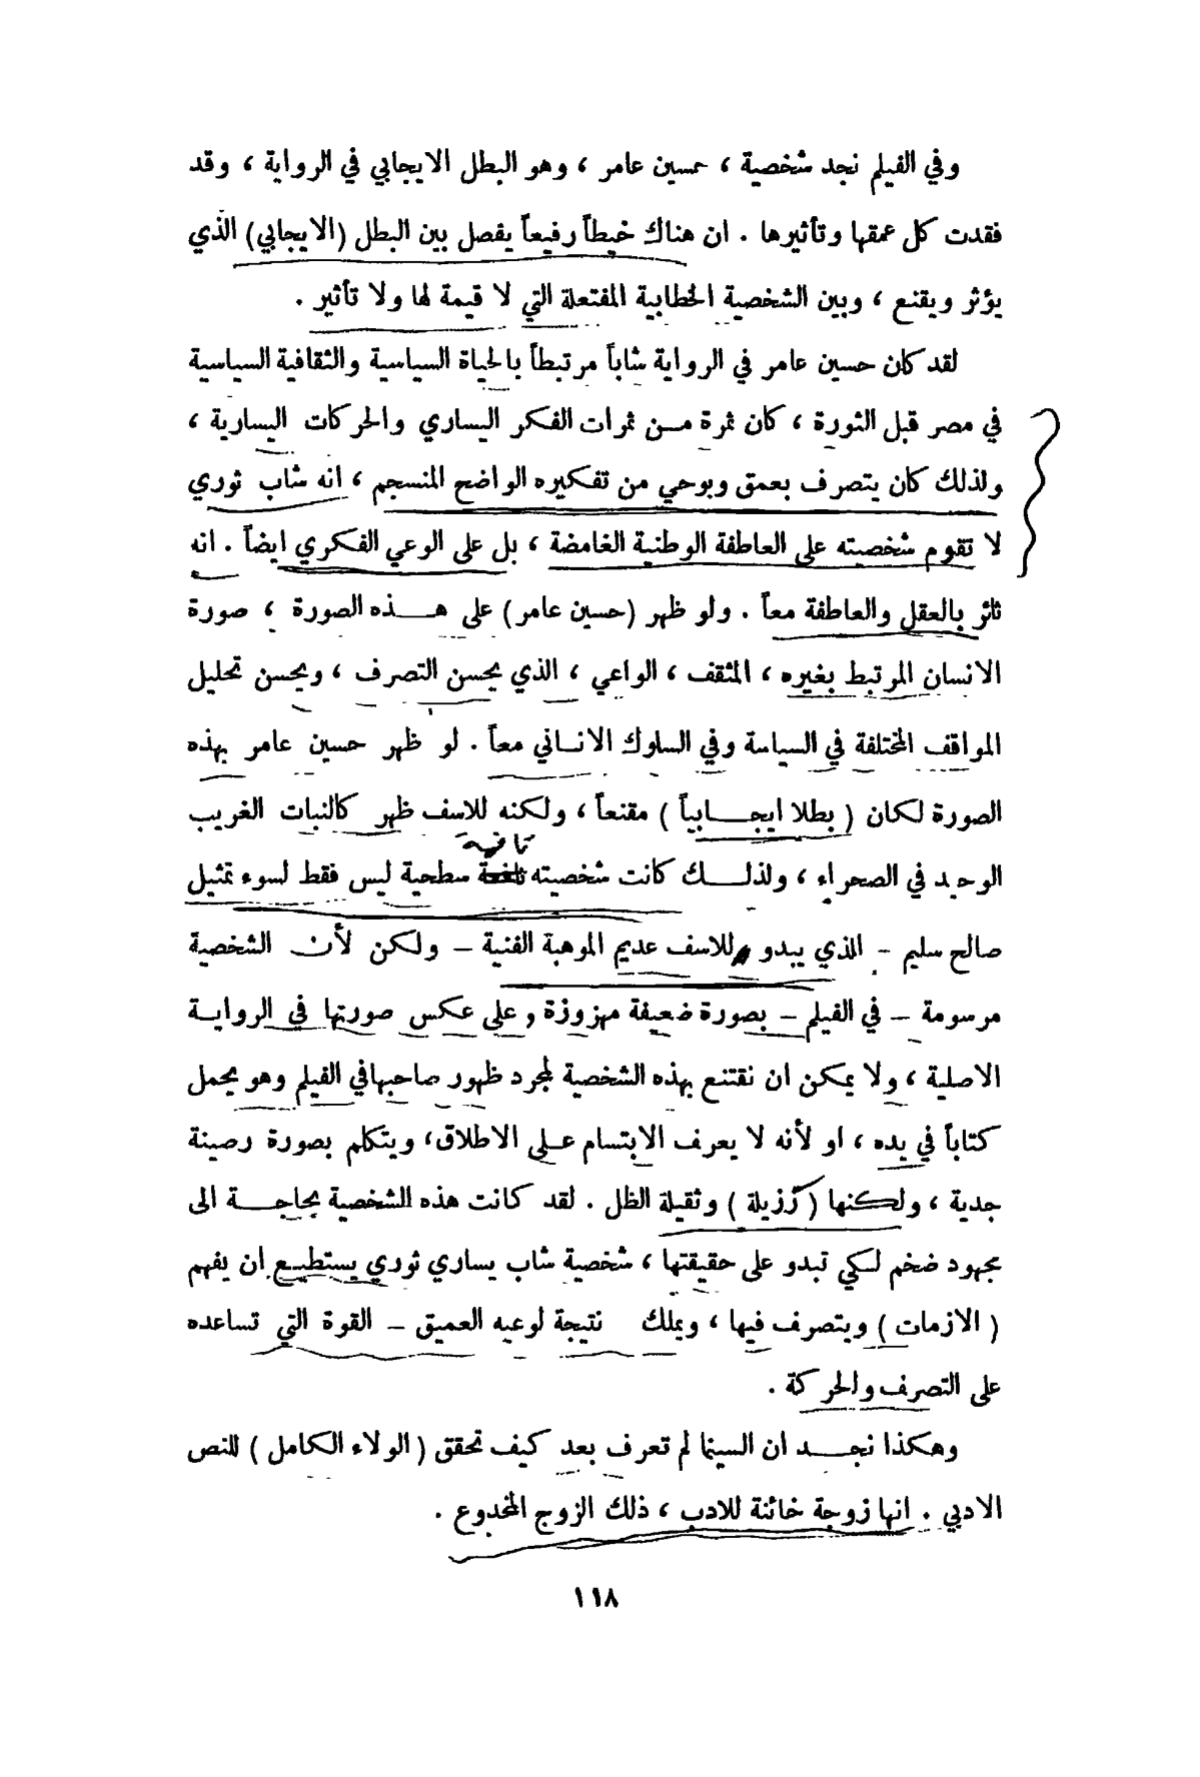 وفي الفيلم نجد شخصية ، حسين عامر ، وهو البطل الايجابي في الرواية ، وقد
فقدت كل عمقها وتأثيرها . ان هناك خيطاً رفيعاً يفصل بين البطل (الايجابي) الذي
يؤثر ويقنع ، وبين الشخصية الخطابية المفتعلة التي لا قيمة لها ولا تأثير .
لقد كان حسين عامر في الرواية شاباً مرتبطاً بالحياة السياسية والثقافية السياسية
في مصر قبل الثورة ، كان ثمرة مـن ثمرات الفكر اليساري والحركات اليسارية ،
ولذلك كان يتصرف بعمق وبوحي من تفكيره الواضح المنسجم ، انه شاب ثوري
لا تقوم شخصيته على العاطفة الوطنية الغامضة ، بل على الوعي الفكري ايضاً . انه
ثائر بالعقل والعاطفة معاً . ولو ظهر (حسين عامر) على هــذه الصورة ، صورة
الانسان المرتبط بغيره ، المثقف ، الواعي ، الذي يحسن التصرف ، ويحسن تحليل
المواقف المختلفة في السياسة وفي السلوك الانساني معاً . لو ظهر حسين عامر بهذه
الصورة لكان ( بطلا ايجــابياً ) مقنعاً ، ولكنه للاسف ظهر كالنبات الغريب
تافهة
الوحيد في الصحراء ، ولذلــك كانت شخصيته سطحية ليس فقط لسوء تمثيل
صالح سليم - الذي يبدو للاسف عديم الموهبة الفنية – ولكن لأن الشخصية
مرسومة – في الفيلم – بصورة ضعيفة مهزوزة و على عكس صورتها في الروايـة
الاصلية ، ولا يمكن ان نقتنع بهذه الشخصية لمجرد ظهور صاحبها في الفيلم وهو يحمل
كتاباً في يده ، او لأنه لا يعرف الابتسام على الاطلاق، ويتكلم بصورة رصينة
جدية ، ولكنها ( رزيلة ) وثقيلة الظل . لقد كانت هذه الشخصية بحاجــة الى
مجهود ضخم لكي تبدو على حقيقتها ، شخصية شاب يساري ثوري يستطيـع ان يفهم
( الازمات ) ويتصرف فيها ، ويملك نتيجة لوعيه العميق – القوة التي تساعده
على التصرف والحركة .
وهكذا نجــد ان السينما لم تعرف بعد كيف تحقق ( الولاء الكامل ) للنص
الادبي . انها زوجة خائنة للادب ، ذلك الزوج المخدوع .
١١٨